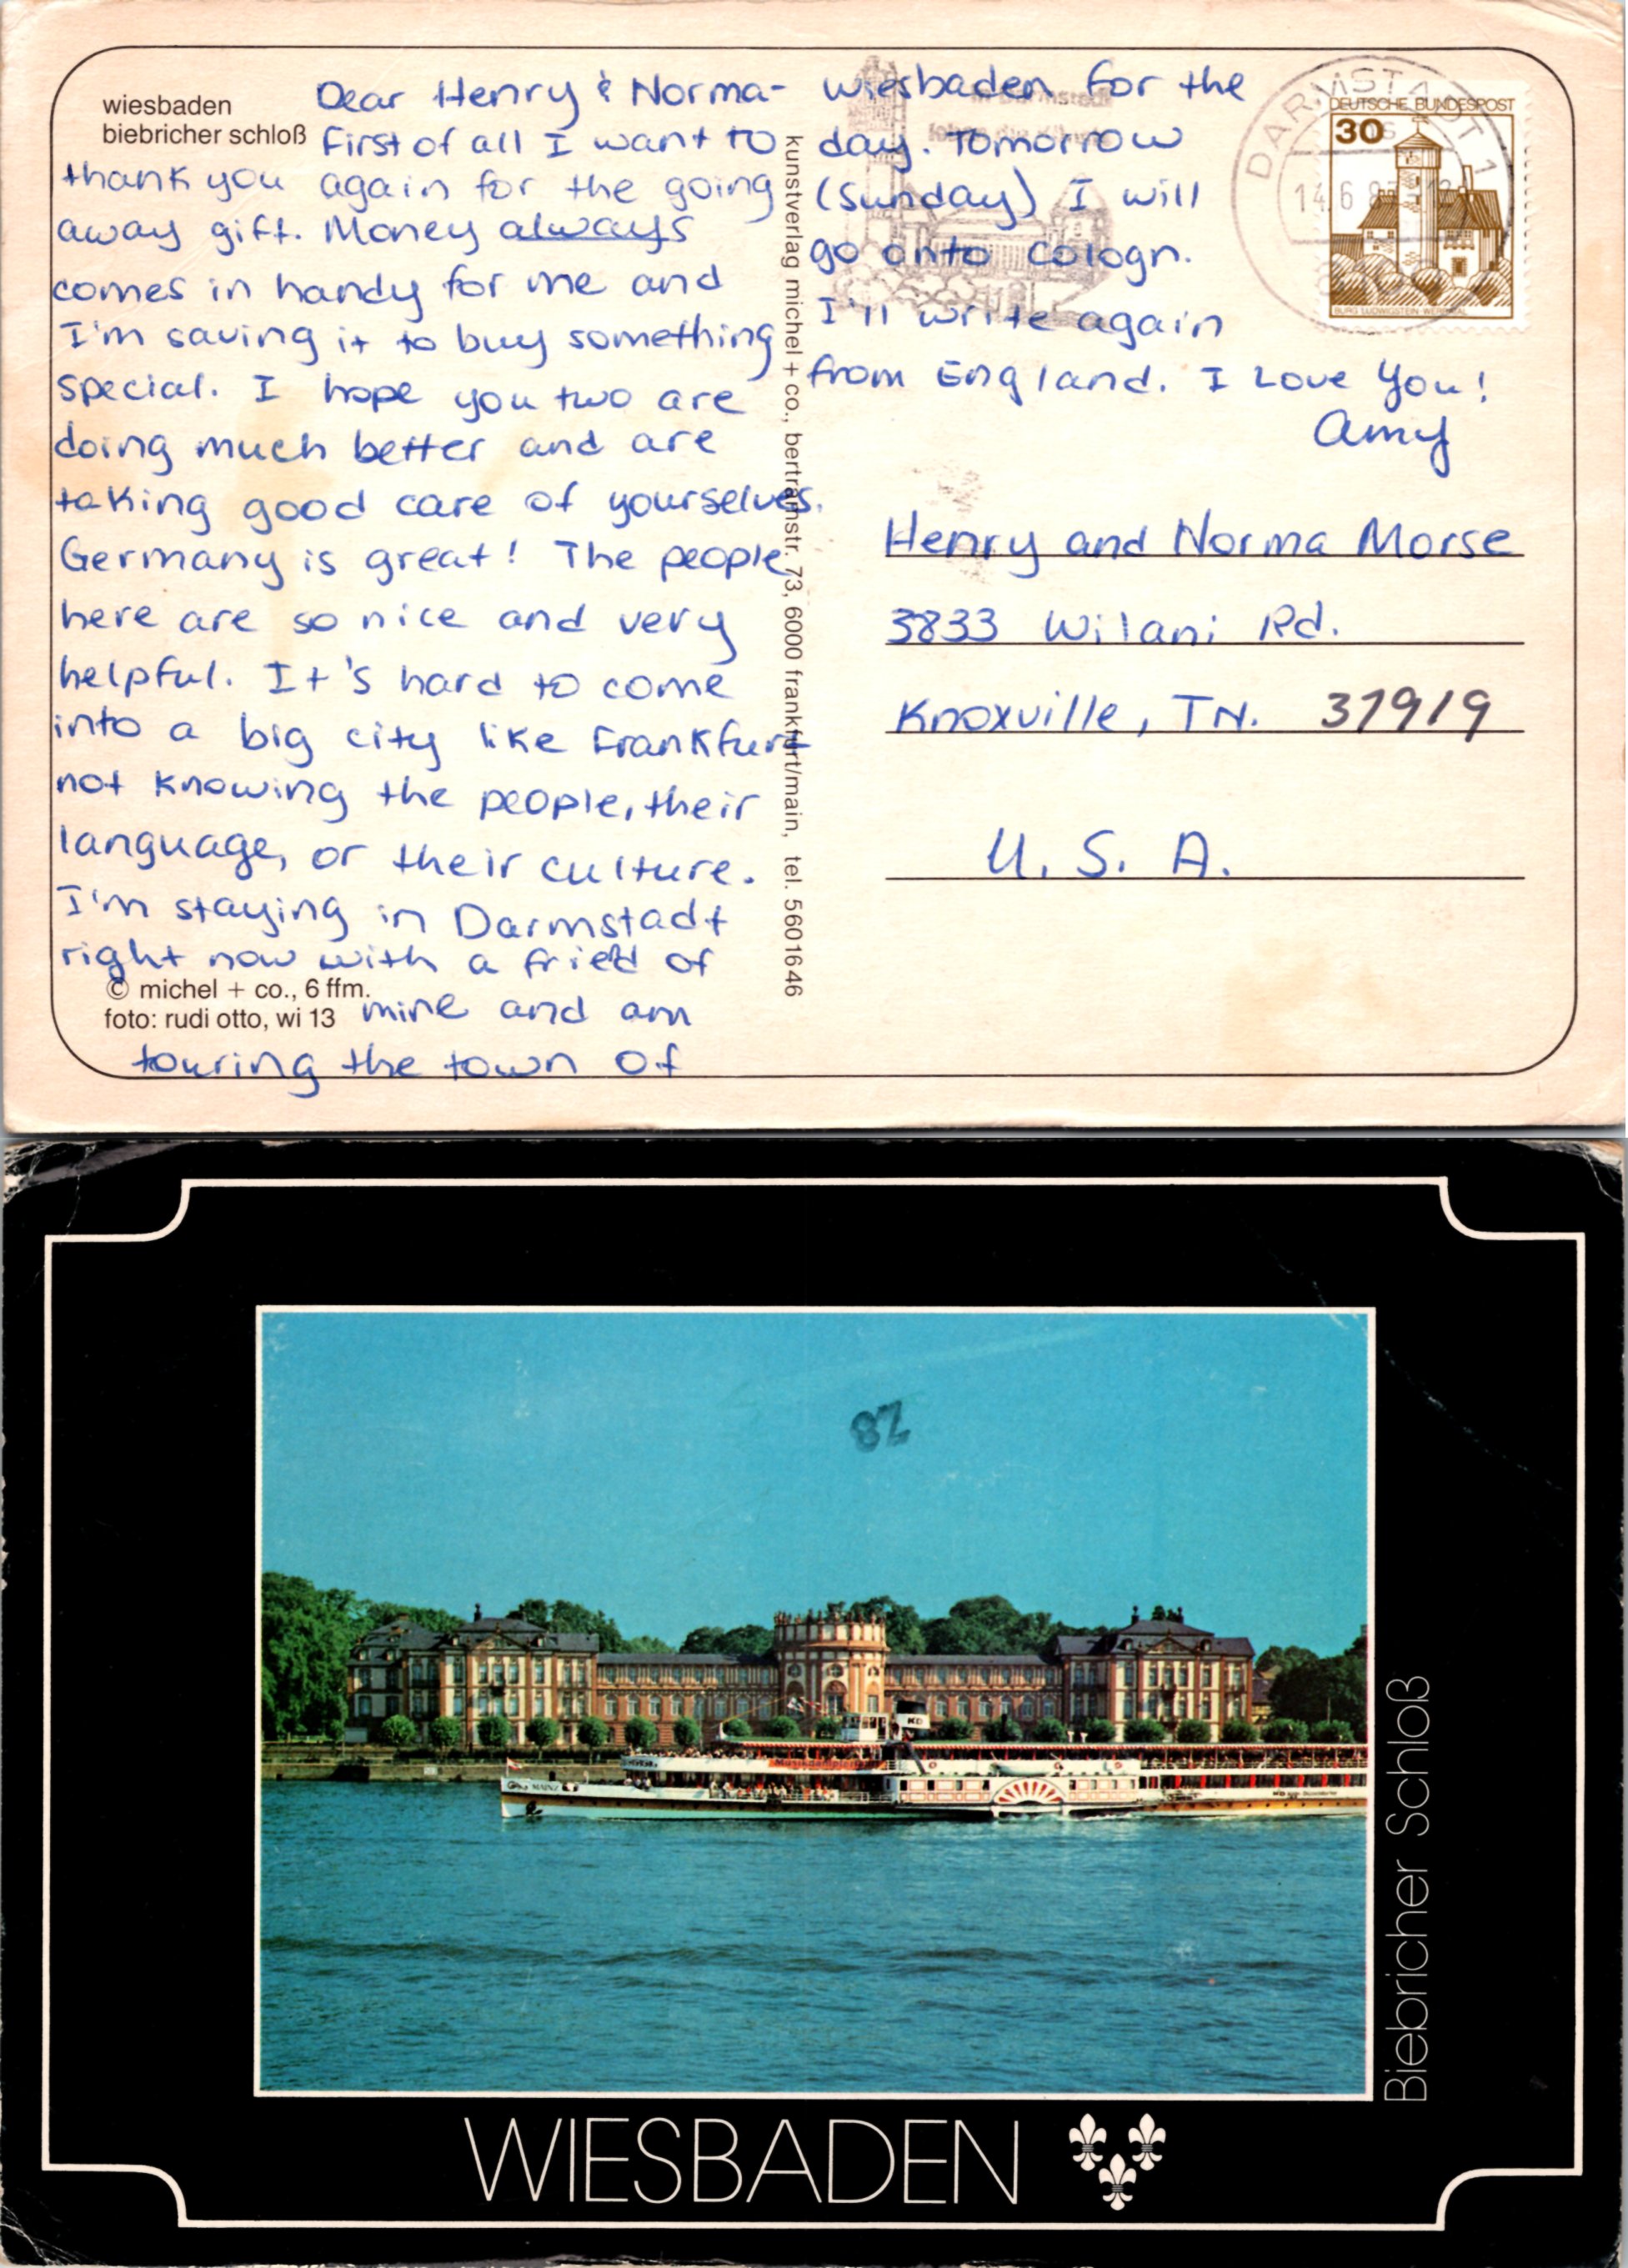 wiesbaden
biebricher schloß
Dear Henry & Norma-
First of all I want to
thank you again for the going
away gift. Money always
comes in handy for me and
I'm saving it to buy something
special. I hope you two are
doing much better and are
taking good care of yourselves.
Germany is great! The people
here are so nice and very
helpful. It's hard to come
into a big city like Frankfurt
not knowing the people, their
language, or their culture.
I'm staying in Darmstadt
right now with a fried of
mine and am
touring the town of
© michel + co., 6 ffm.
foto: rudi otto, wi 13
kunstverlag michel + co., bertramstr. 73, 6000 frankfurt/main, tel. 5601646
wiesbaden for the
day. Tomorrow
(Sunday) I will
go onto Cologn.
I'll write again
from England. I Love You!
Amy
DARMSTADT 1
14.6.8
DEUTSCHE BUNDESPOST
30
BURG LUDWIGSTEIN WERRATAL
Henry and Norma Morse
3833 Wilani Rd.
Knoxville, TN. 37919
U. S. A.
28
MAINZ
KD
Biebricher Schloß
WIESBADEN